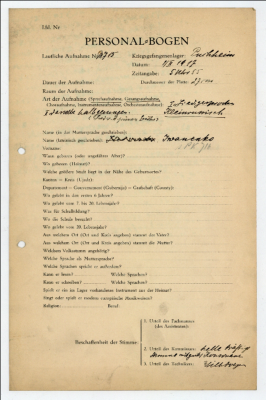 Lfd. Nr.
PERSONAL-BOGEN
Lautliche Aufnahme Nr.
Kriegsgefangenenlager: Puchheim
Datum:
Zeitangabe: 5 Uhr
Dauer der Aufnahme:
Durchmesser der Platte: 27 cm
Raum der Aufnahme:
Art der Aufnahme (Sprechaufnahme, Gesangsaufnahme,
Choraufnahme, Instrumentenaufnahme, Orchesteraufnahme):
Name (in der Muttersprache geschrieben):
Name (lateinisch geschrieben): Iwanenko
Vorname:
Wann geboren (oder ungefähres Alter)?
Wo geboren (Heimat)?
Welche größere Stadt liegt in der Nähe des Geburtsortes?
Kanton — Kreis (Ujedz):
Departement — Gouvernement (Gubernija) — Grafschaft (County):
Wo gelebt in den ersten 6 Jahren?
Wo gelebt vom 7. bis 20. Lebensjahr?
Was für Schulbildung?
Wo die Schule besucht?
Wo gelebt vom 20. Lebensjahr?
Aus welchem Ort (Ort und Kreis angeben) stammt der Vater?
Aus welchem Ort (Ort und Kreis angeben) stammt die Mutter?
Welchem Volksstamm angehörig?
Welche Sprache als Muttersprache?
Welche Sprachen spricht er außerdem?
Kann er lesen? Welche Sprachen?
Kann er schreiben? Welche Sprachen?
Spielt er ein im Lager vorhandenes Instrument aus der Heimat?
Singt oder spielt er modern europäische Musikweisen?
Religion: Beruf:
Beschaffenheit der Stimme:
1. Urteil des Fachmannes
(des Assistenten):
2. Urteil des Kommissars: helle
3. Urteil des Technikers: